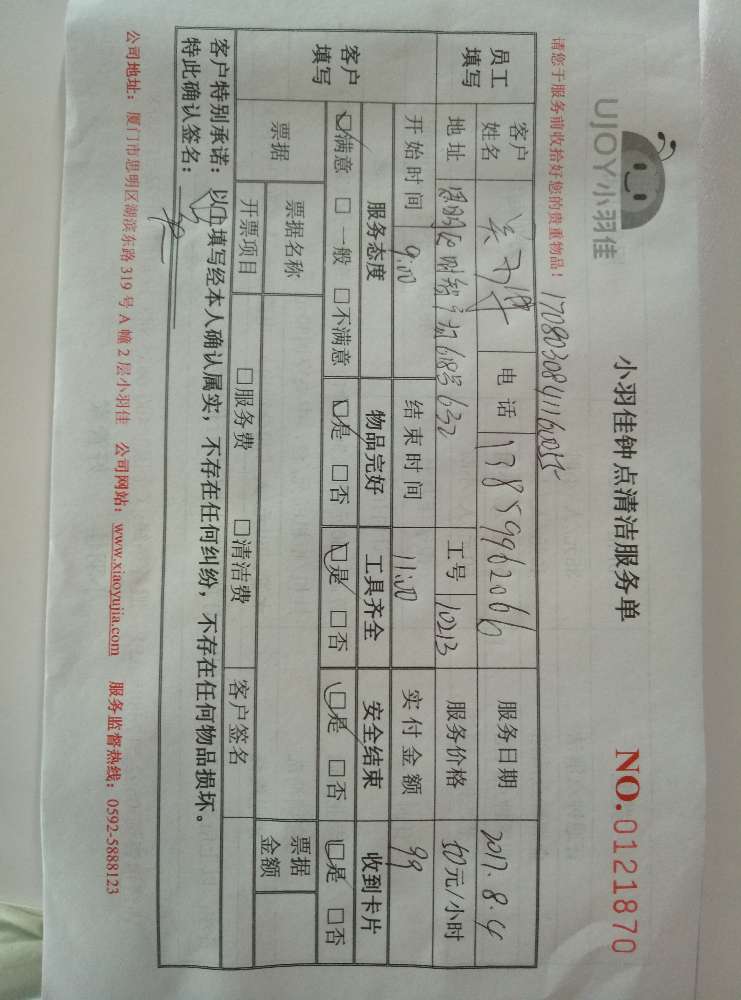 UJOY小羽佳
小羽佳钟点清洁服务单
NO.0121870
请您于服务前收拾好您的贵重物品！
1708030841160055
员工填写
客户姓名
电话 13859962066
服务日期 2017.8.4
地址
618号632
工号 10213
服务价格 50元/小时
开始时间 9:00
结束时间 11:00
实付金额 99
客户填写
服务态度 物品完好 工具齐全 安全结束 收到卡片
☑满意 □一般 □不满意 ☑是 □否 ☑是 □否 ☑是 □否 ☑是 □否
票据
票据名称
票据金额
开票项目 □服务费 □清洁费 客户签名
客户特别承诺：以上填写经本人确认属实，不存在任何纠纷，不存在任何物品损坏。
特此确认签名：
公司地址：厦门市思明区湖滨东路319号A幢2层小羽佳 公司网站：www.xiaoyujia.com 服务监督热线：0592-5888123